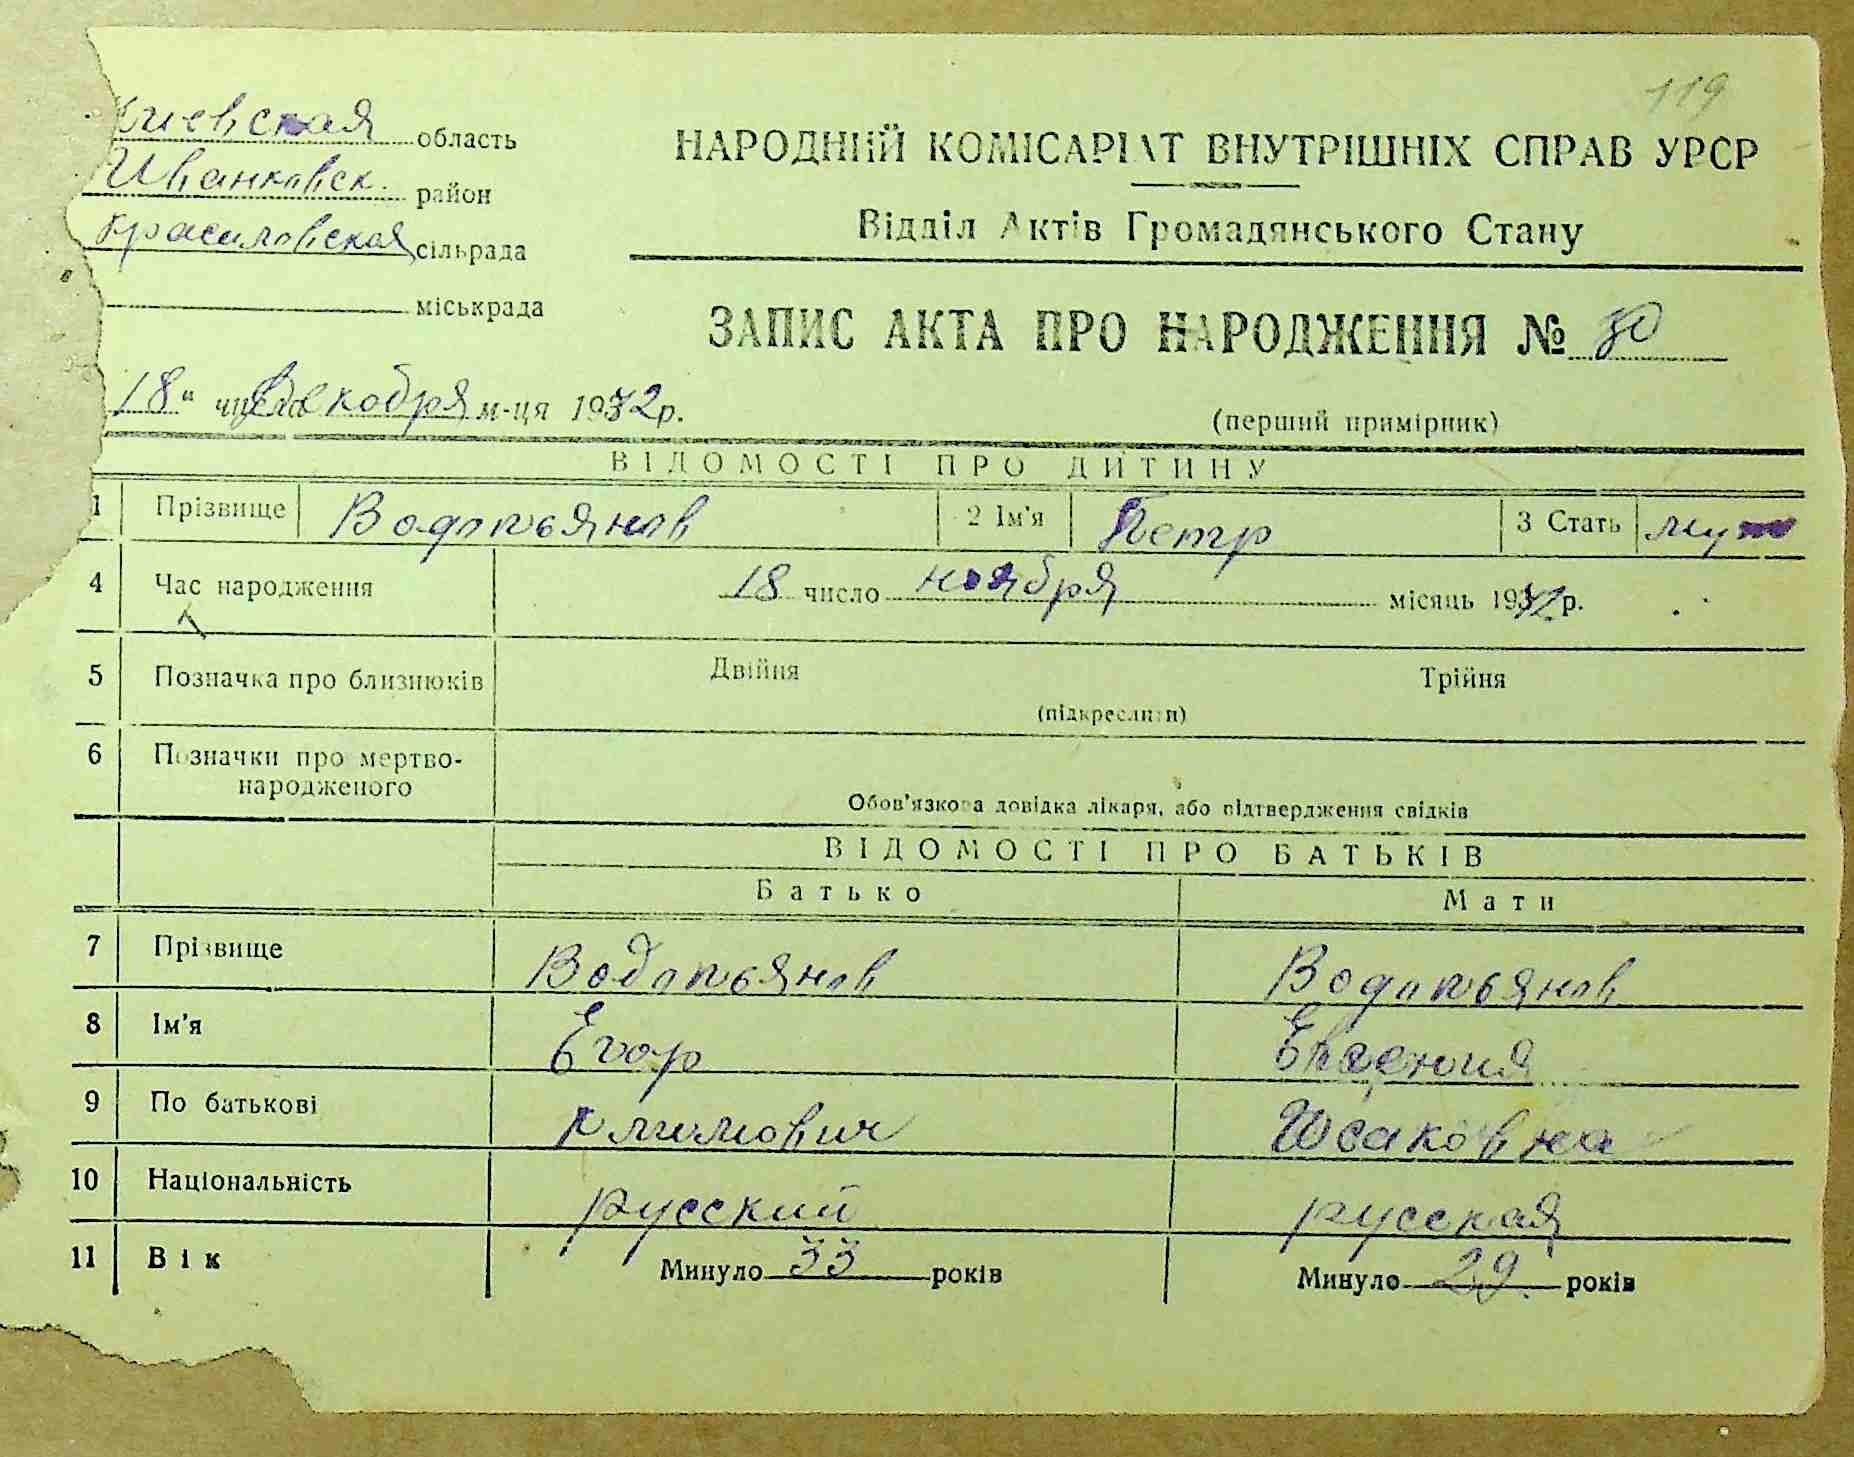 119
Киевская область
Иванковск. район
Красиловская сільрада
міськрада
НАРОДНІЙ КОМІСАРІАТ ВНУТРІШНІХ СПРАВ УРСР
Відділ Актів Громадянського Стану
ЗАПИС АКТА ПРО НАРОДЖЕННЯ №
18 " числа декобря м-ця 1942р.
(перший примірник)
ВІДОМОСТІ ПРО ДИТИНУ
1 Прізвище Водопьянов 2 Ім'я Петр 3 Стать муж
4 Час народження 18 число ноября місяць 1942р.
5 Позначка про близнюків Двійня Трійня
(підкреслити)
6 Позначки про мертво-
народженого
Обов'язкова довідка лікаря, або підтвердження свідків
ВІДОМОСТІ ПРО БАТЬКІВ
Батько Мати
7 Прізвище Водопьянов Водопьянов
8 Ім'я Егор Евгения
9 По батькові Климович Исаковна
10 Національність русский русская
11 Вік Минуло 33 років Минуло 29 років